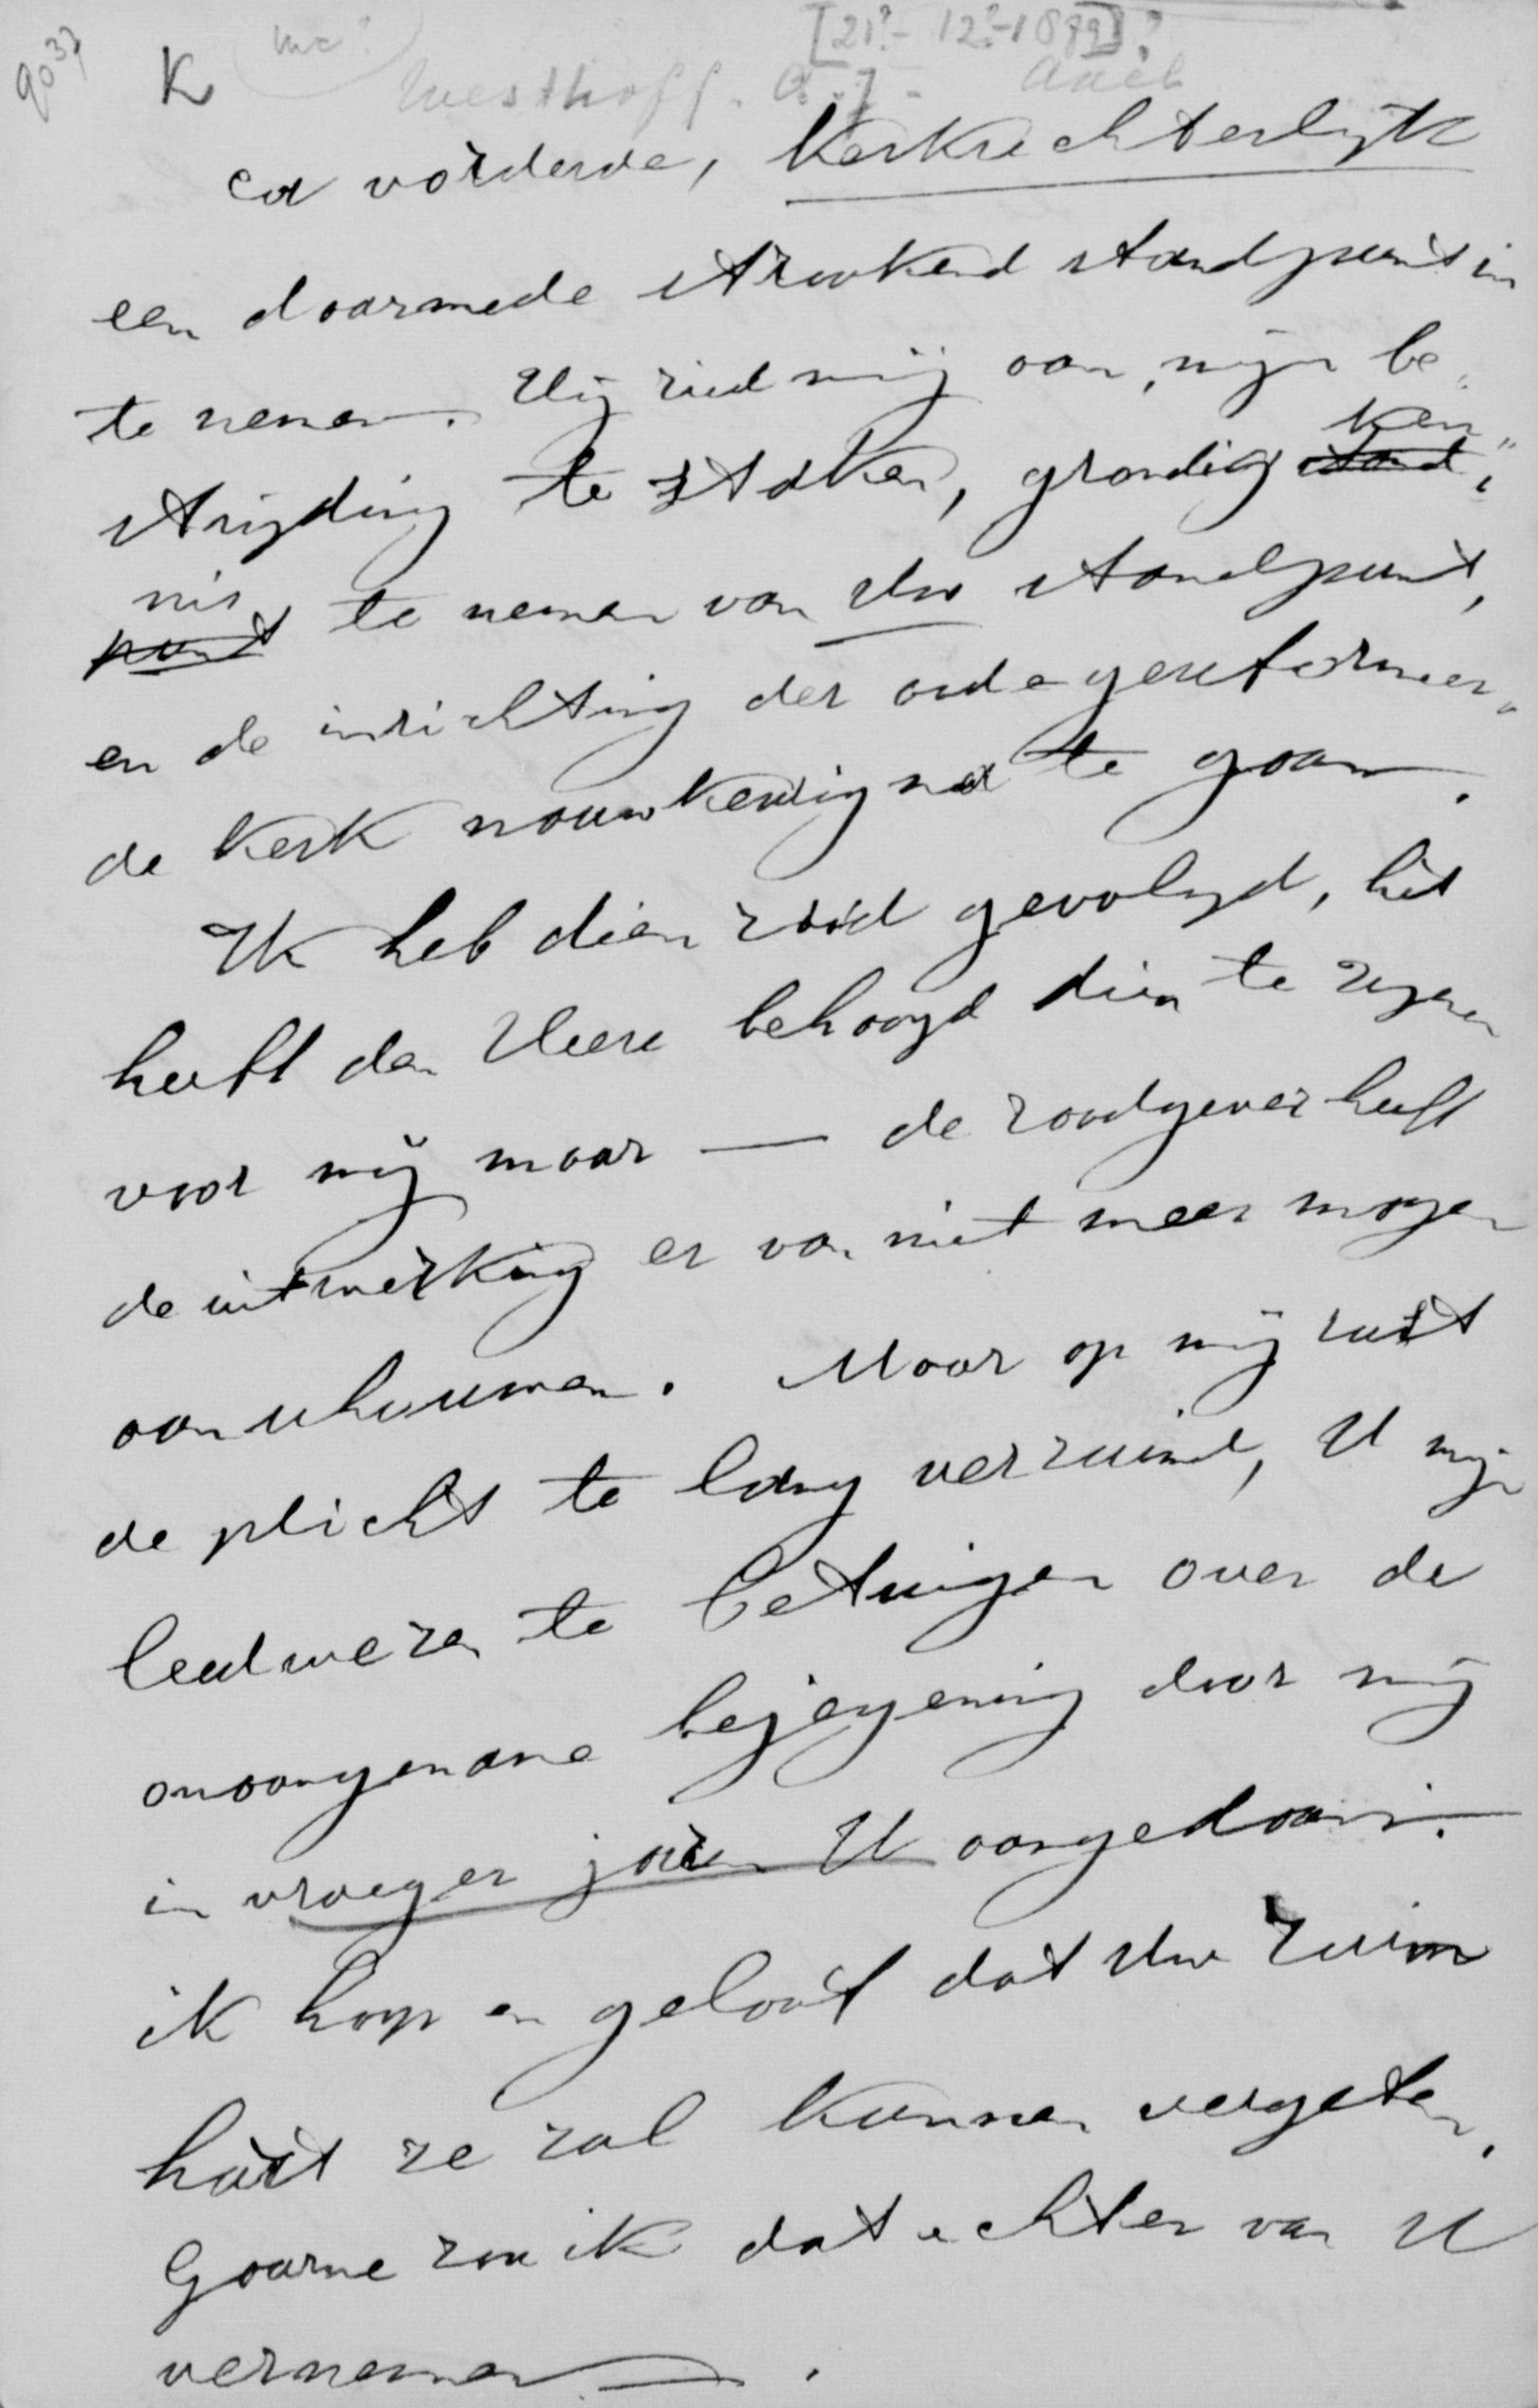 9037 K [21?-12?-1879]?
Westhoff. A.] - Axel
en vorderde, Kerkrechterlijk
een daarmede strookend standpunt in
te nemen. Hij ried mij aan, mijn be„
strijding te staken, grondig ken„
nis te nemen van Uw standpunt,
en de inrichting der oude gereformeer„
de Kerk nauwkeurig na te gaan.
Ik heb dien raad gevolgd, het
heeft den Heere behaagd dien te zegenen
voor mij maar — de raadgever heeft
de uitwerking er van niet meer mogen
aanschouwen. Maar op mij rust
de plicht te lang verzuimd, U mijn
leedwezen te betuigen over de
onaangename bejegening door mij
in vroeger jaren U aangedaan.
ik hoop en geloof dat Uw ruim
hart ze zal kunnen vergeten.
Gaarne zou ik dat echter van U
vernemen.